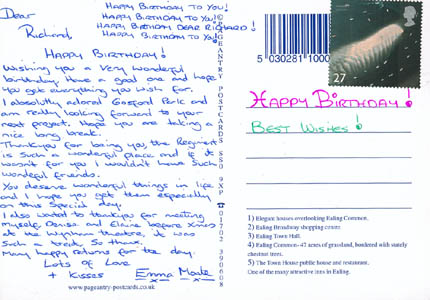 Dear
Richard,
HAPPY BIRTHDAY TO YOU!
HAPPY BIRTHDAY TO YOU!
HAPPY BIRTHDAY DEAR RICHARD!
HAPPY BIRTHDAY TO YOU!
HAPPY BIRTHDAY!
Wishing you a very wonderful
birthday. Have a good one and hope
you get everything you wish for.
I absolutely adored Gosford Park and
am really looking forward to your
next project. Hope you are taking a
nice long break.
Thankyou for being you, the Regiment
is such a wonderful place and if it
wasn't for you I wouldn't have such
wonderful friends.
You deserve wonderful things in life
and I hope you get them especially
on this Special day.
I also wanted to thankyou for meeting
Myself, Denise and Elaine before Xmas
at the Wyndham theatre, it was
such a treat. So thanx.
Many happy returns for the day.
Lots of Love
+ Kisses Emma
www.pageantry-postcards.co.uk
© PAGEANTRY POSTCARDS SS0 9XP ☎ 01702 390608
5 030281 11000
27
HAPPY BIRTHDAY!
BEST WISHES!
1) Elegant houses overlooking Ealing Common.
2) Ealing Broadway shopping centre
3) Ealing Town Hall.
4) Ealing Common-47 acres of grassland, bordered with stately
chestnut trees.
5) The Town House public house and restaurant.
One of the many attractive inns in Ealing.